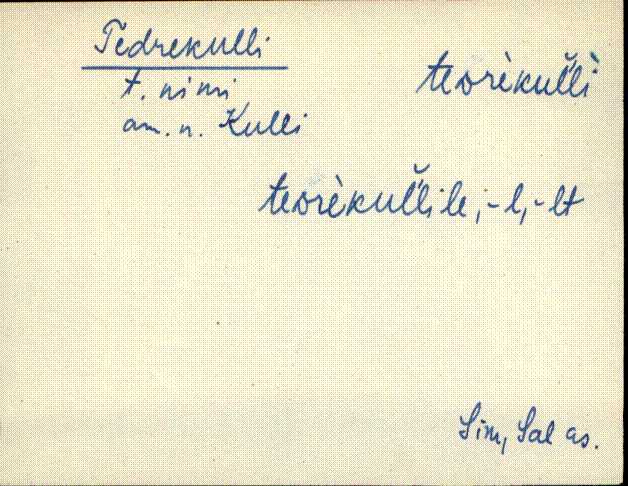 Tedrekulli
t. nimi
am. n. Kulli
teorèkul̆l̀i
teorèkul̆lile, -l, -lt
Sim, Sal as.